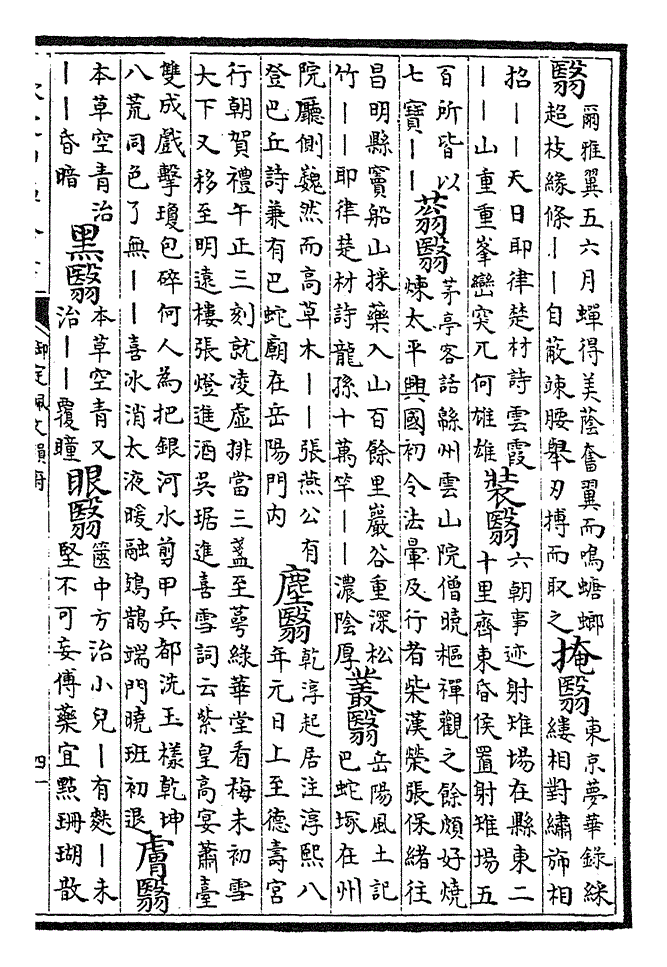 翳 爾雅翼五六月蟬得美蔭奮翼而鳴螗螂
超枝緣條丨丨自蔽竦腰舉刃搏而取之
掩翳 東京夢華錄綵
縷相對繡斾相
招丨丨天日耶律楚材詩雲霞
丨丨山重重峯巒突兀何雄雄
裝翳 六朝事迹射雉場在縣東二
十里齊東昏侯置射雉場五
百所皆以
七寶丨丨
蓊翳 茅亭客話緜州雲山院僧曉樞禪觀之餘頗好燒
煉太平興國初令法暈及行者柴漢榮張保緒往
昌明縣竇船山採藥入山百餘里巖谷重深松
竹丨丨耶律楚材詩龍孫十萬竿丨丨濃陰厚
叢翳 岳陽風土記
巴蛇塚在州
院廳側巍然而高草木丨丨張燕公有
登巴丘詩兼有巴蛇廟在岳陽門内
塵翳 乾淳起居注淳熙八
年元日上至德壽宮
行朝賀禮午正三刻就凌虛排當三盞至萼綠華堂看梅未初雪
大下又移至明遠樓張燈進酒吳琚進喜雪詞云紫皇高宴蕭臺
雙成戲擊瓊包碎何人為把銀河水剪甲兵都洗玉樣乾坤
八荒同色了無丨丨喜冰消太液暖融鳷鵲端門曉班初退
膚翳
本草空青治
丨丨昏暗
黑翳 本草空青又
治丨丨覆瞳
眼翳 篋中方治小兒丨有麩丨未
堅不可妄傅藥宜點珊瑚散
御定佩文韻府
四一